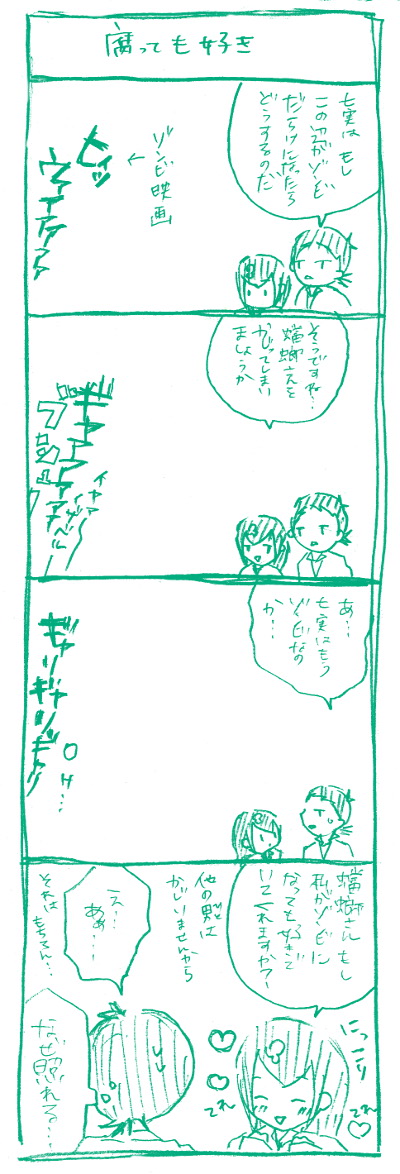 腐っても好き
七実は もし
この辺がゾンビ
だらけになったら
どうするのだ
ゾンビ映画
←
ヒィッ
ウァァァァァ
そうですね…
蟷螂さんを
かじってしまい
ましょうか
ギャァァァァァ
イヤァ
ブシュ
あ…
七実はもう
ゾンビなの
か…
ギャリ
ギャリ
ギャリ
蟷螂さん もし
私がゾンビに
なっても好きで
いてくれますか?
他の男は
かじりませんから
え…
ああ…
それは
もちろん…
にっこり
てれ
てれ
なぜ照れる…